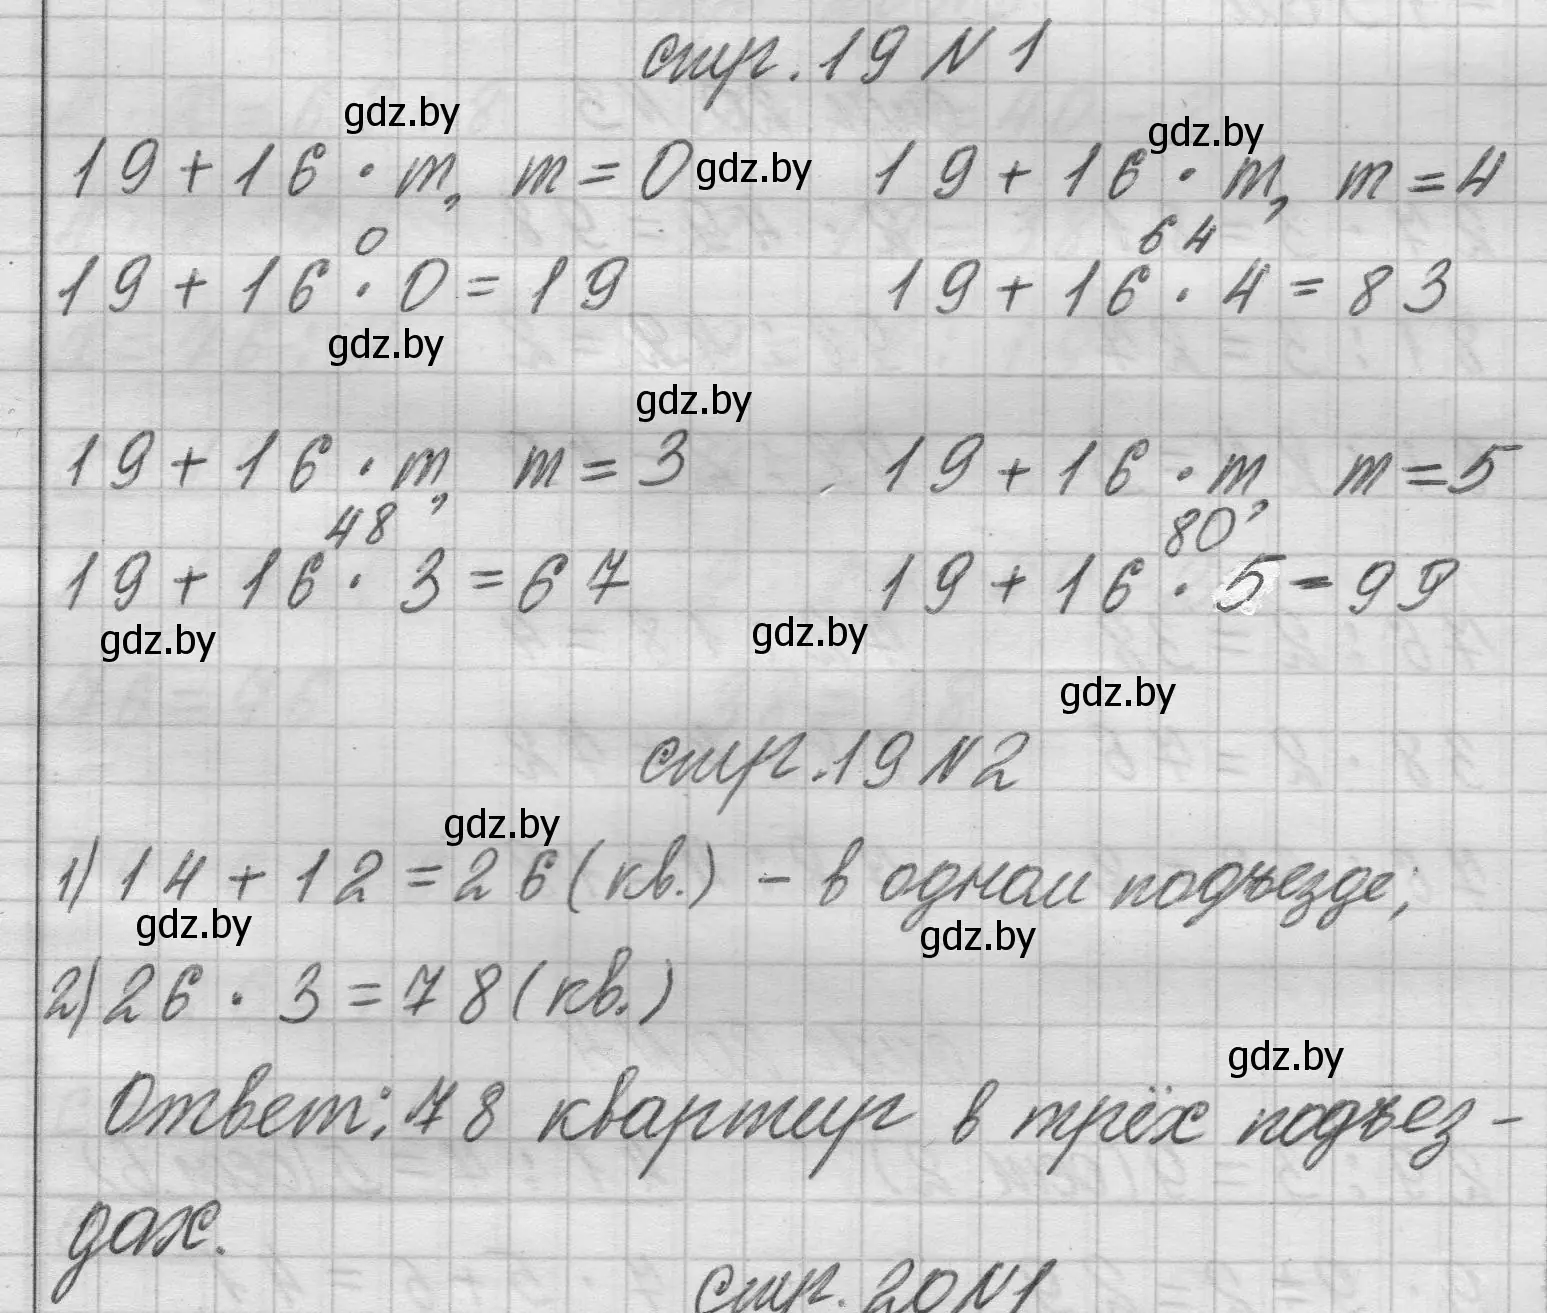 стр. 19 N 1
gdz.by gdz.by
19 + 16 · m, m = 0 gdz.by 19 + 16 · m, m = 4
0 64
19 + 16 · 0 = 19 19 + 16 · 4 = 83
gdz.by
gdz.by
19 + 16 · m, m = 3 19 + 16 · m, m = 5
48 80
19 + 16 · 3 = 67 19 + 16 · 5 = 99
gdz.by gdz.by
gdz.by
стр. 19 N 2
gdz.by
1) 14 + 12 = 26 (кв.) – в одном подъезде;
gdz.by gdz.by
2) 26 · 3 = 78 (кв.)
gdz.by
Ответ: 78 квартир в трёх подъез-
дах.
стр. 20 N 1